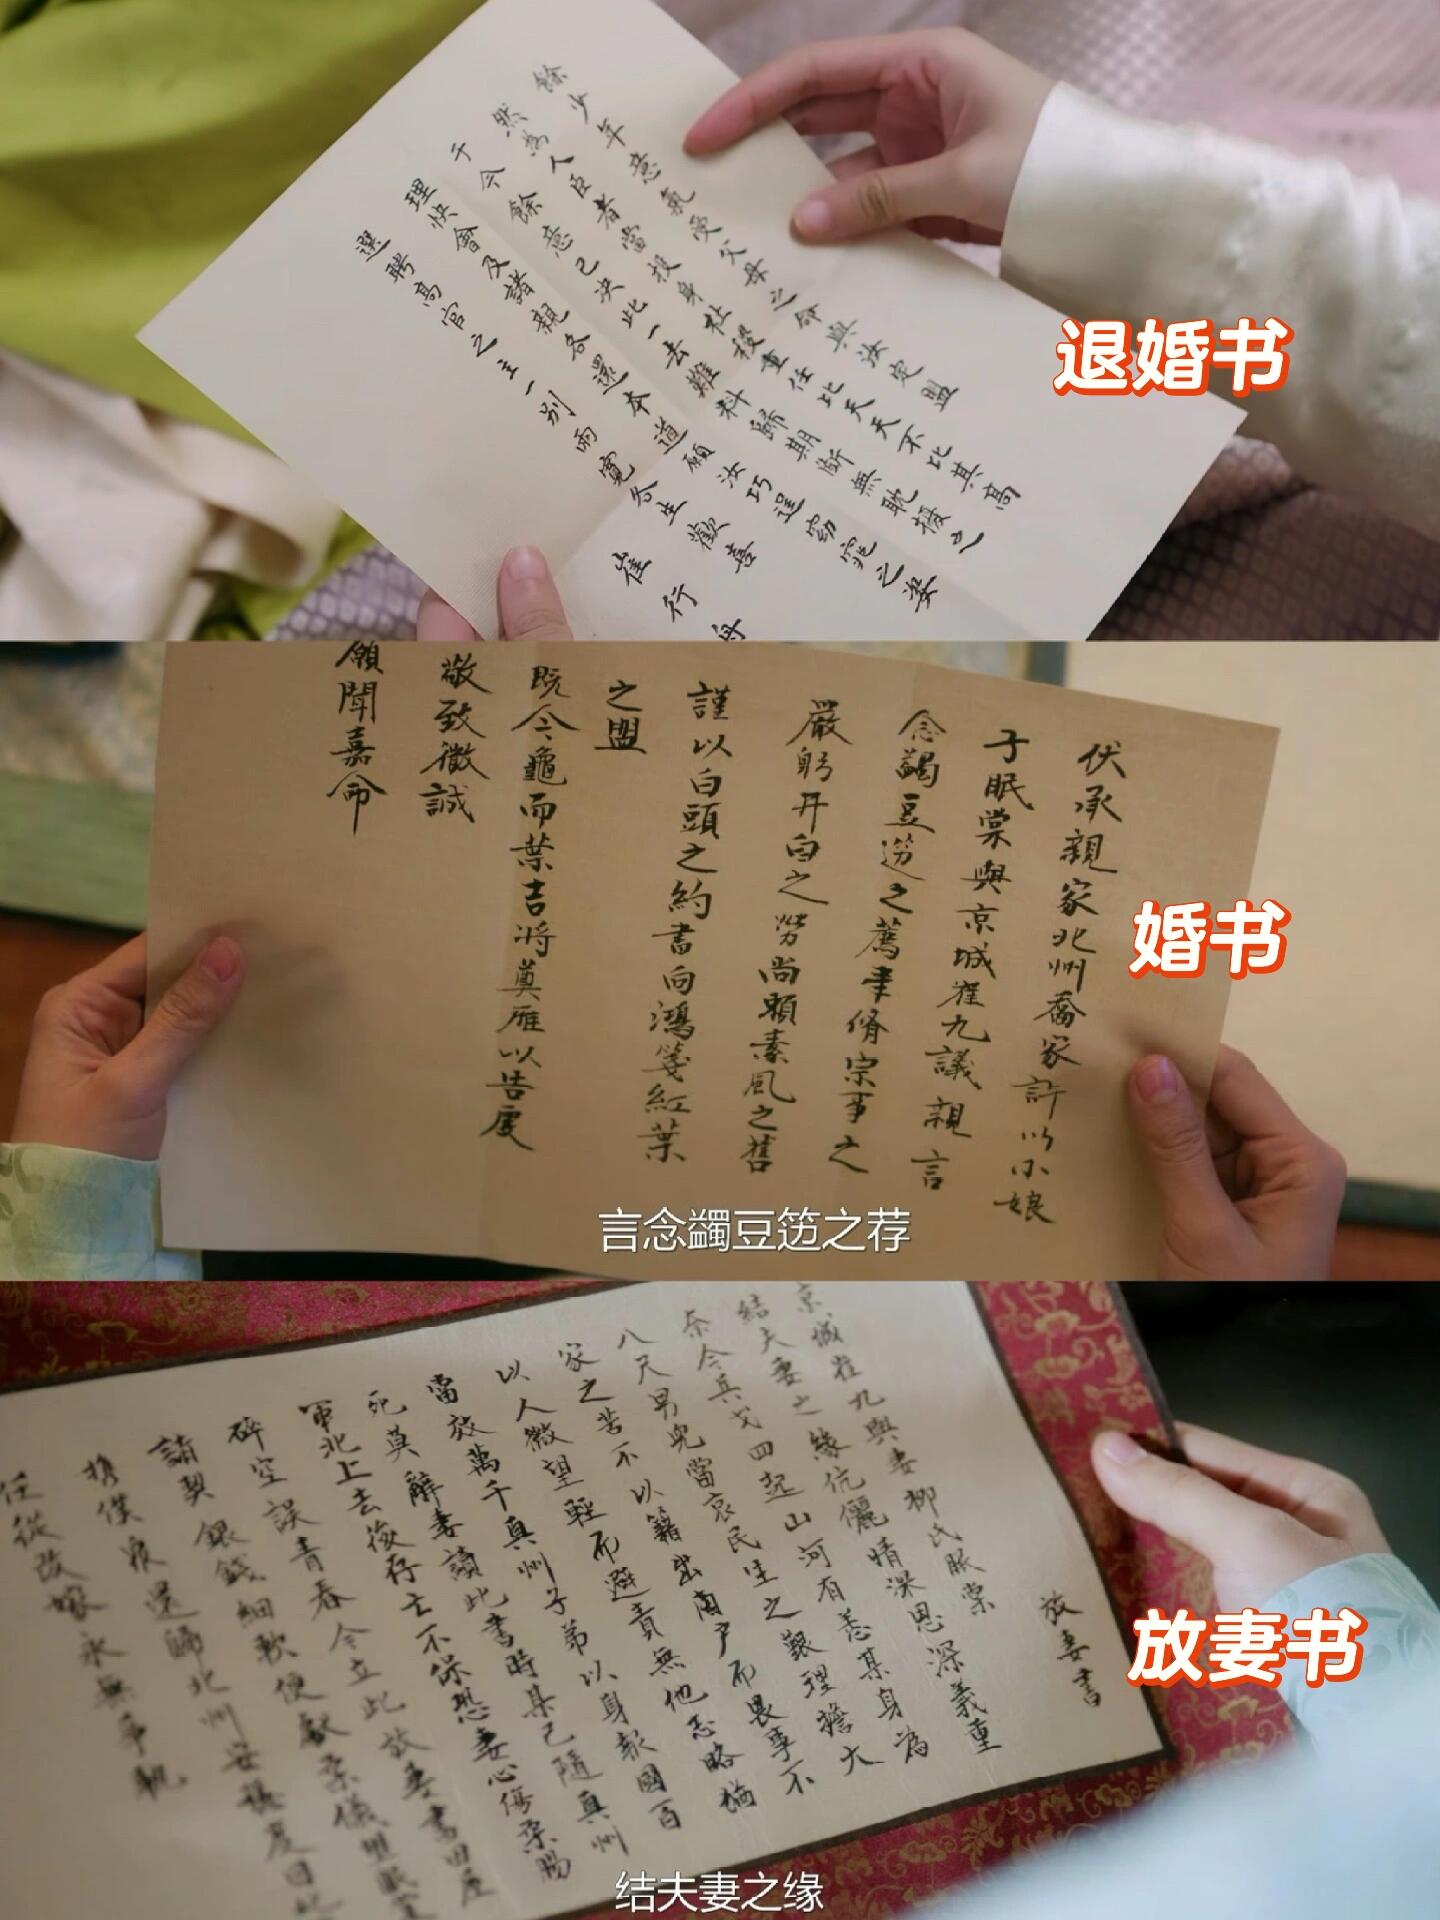 餘少年意氣受父母之命與汝定盟
然為人臣者當投身社稷重任比天天不比其高
于今餘意已決此一去難料歸期斷無耽擱之
理快會及諸親各還本道願汝巧逞窈窕之姿
選聘高官之主一別兩寬各生歡喜
崔行舟
退婚书
伏承親家北州喬家許以小娘
子眠棠與京城崔九議親言
念蠲豆笾之薦聿脩宗事之
嚴躬井臼之勞尚賴素風之舊
謹以白頭之約書向鴻箋紅葉
之盟
既令龜而葉吉將奠雁以告虔
敬致微誠
願聞嘉命
婚书
言念蠲豆笾之荐
放妻書
京城崔九與妻柳氏眠棠
結夫妻之緣伉儷情深恩深義重
奈今其戈四起山河有恙某身為
八尺男兒當哀民生之艱理擔大
家之苦不以籍出商戶而畏事不
以人微望輕而避責無他志略惱
當效萬千真州子弟以身報國百
死莫辭妻讀此書時某已隨真州
軍北上去後存亡不保恐妻心傷柔腸
碎空誤青春今立此放妻書田產
請契銀錢細軟便獻柔儀
攜僕狼還歸北州安穩度日
任從改嫁永無爭執
放妻书
结夫妻之缘